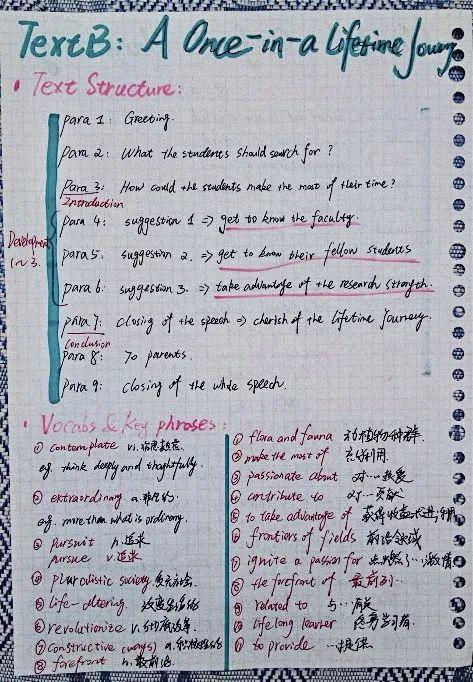 Text B: A Once-in-a Lifetime Journey
Text Structure:
para 1: Greeting.
para 2: What the students should search for?
Para 3: How could the students make the most of their time?
Introduction
Para 4: suggestion 1 => get to know the faculty.
para 5. suggestion 2. => get to know their fellow students
para 6: suggestion 3. => take advantage of the research strength.
para 7: closing of the speech => cherish of the lifetime journey.
Conclusion
Para 8: To parents.
Para 9: closing of the whole speech.
Development
1~3.
Vocabs & Key phrases:
① contemplate vi.
eg. think deeply and thoughtfully.
② extraordinary a.非凡的
eg. more than what is ordinary.
③ pursuit n.追求
pursue v.追求
④ pluralistic society
⑤ life-altering 改变生活的
⑥ revolutionize v.彻底改革
⑦ constructive (ways) a.
⑧ forefront n.最前沿
① flora and fauna 动植物种群.
② make the most of 充分利用
③ passionate about 对…热爱
④ contribute to 对…贡献
⑤ to take advantage of
⑥ frontiers of fields 前沿领域
⑦ ignite a passion for 点燃了…激情
⑧ the forefront of 最前列…
⑨ related to 与…有关
⑩ lifelong learner 终身学习者
⑪ to provide …提供